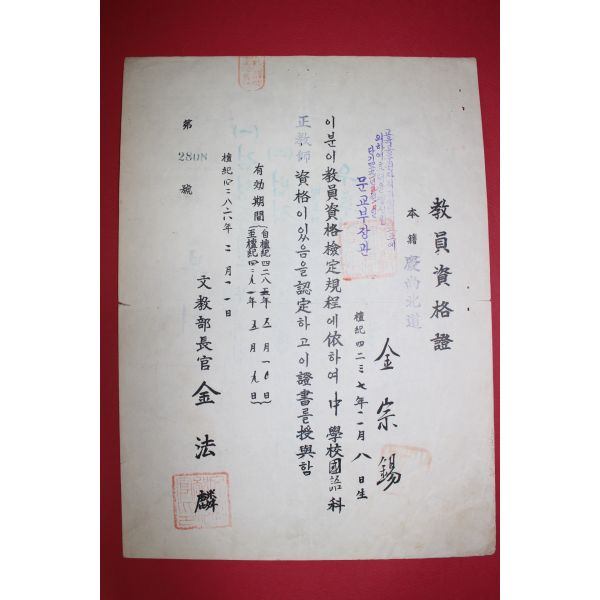 教員資格證
本籍 慶尚北道
金宗錫
檀紀四二三七年二月八日生
문교부장관
이분이敎員資格檢定規程에依하여中學校國語科
正敎師資格이있음을認定하고이證書를授與함
有効期間
自檀紀四二八五年五月一0日
至檀紀四二九一年五月九日
檀紀四二八六年二月一一日
文敎部長官 金法麟
第 2808 號